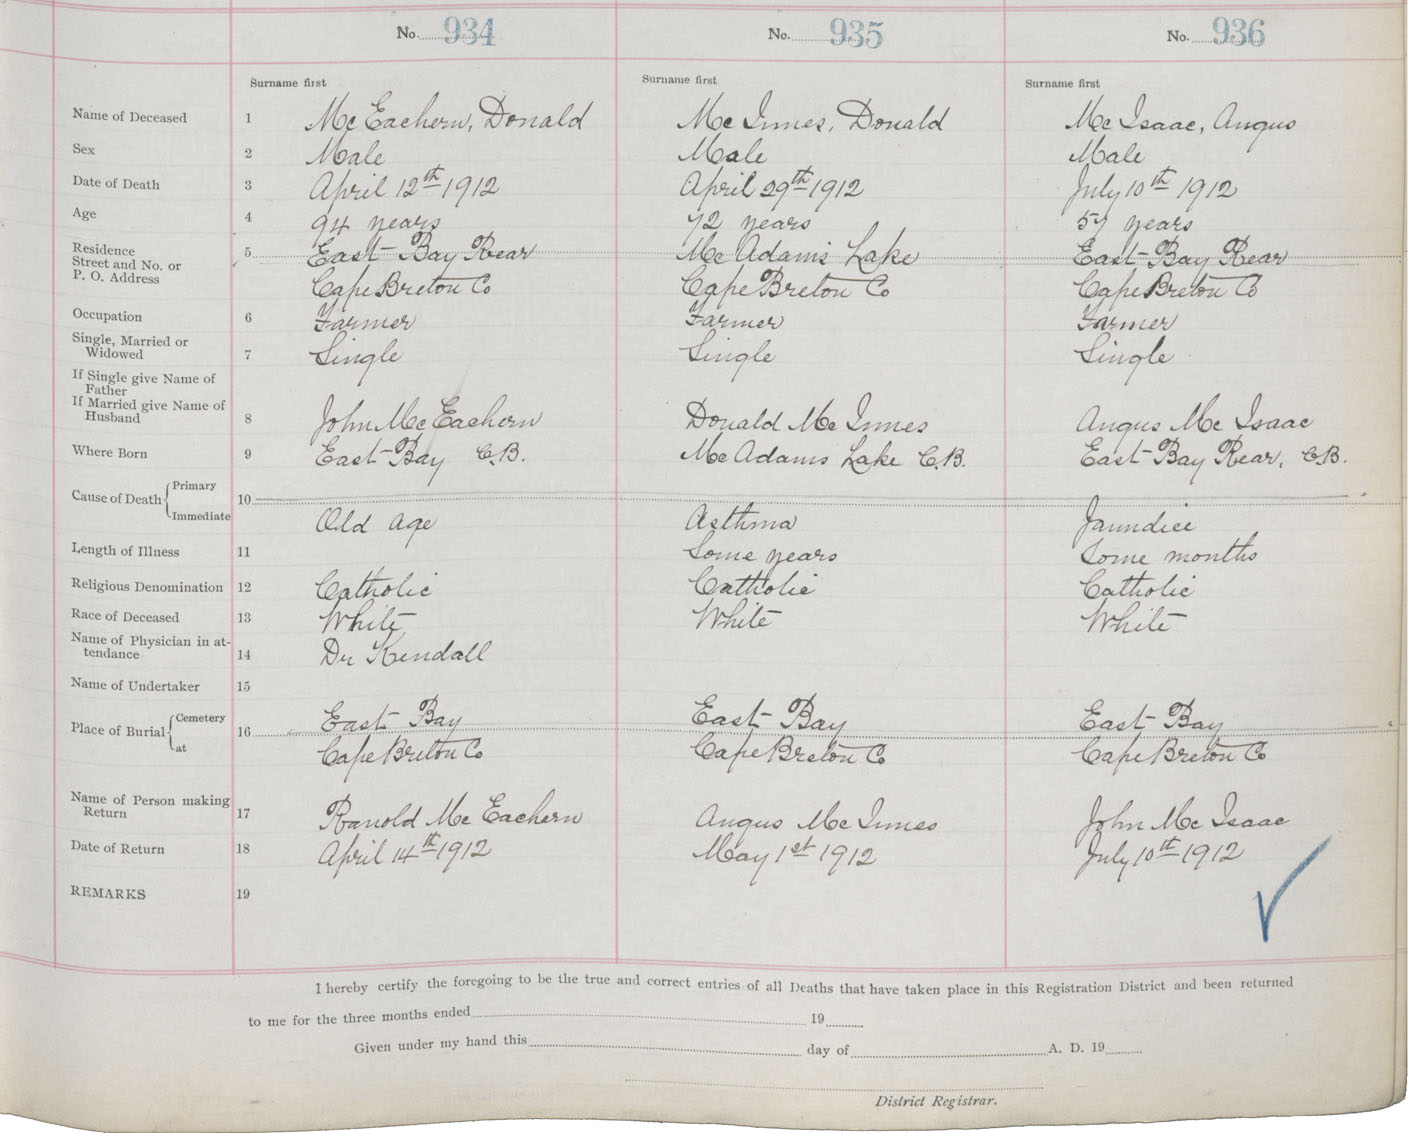 No. 934 No. 935 No. 936
Surname first Surname first Surname first
Name of Deceased 1 McEachern, Donald McInnes, Donald McIsaac, Angus
Sex 2 Male Male Male
Date of Death 3 April 12th 1912 April 29th 1912 July 10th 1912
Age 4 94 years 72 years 57 years
Residence
Street and No. or
P. O. Address
5 East Bay Rear McAdams Lake East Bay Rear
Cape Breton Co Cape Breton Co Cape Breton Co
Occupation 6 Farmer Farmer Farmer
Single, Married or
Widowed 7 Single Single Single
If Single give Name of
Father
If Married give Name of
Husband 8 John McEachern Donald McInnes Angus McIsaac
Where Born 9 East Bay C.B. McAdams Lake C.B. East Bay Rear, C.B.
Cause of Death Primary
10
Immediate Old age Asthma Jaundice
Length of Illness 11 Some years Some months
Religious Denomination 12 Catholic Catholic Catholic
Race of Deceased 13 White White White
Name of Physician in at-
tendance 14 Dr Kendall
Name of Undertaker 15
Place of Burial Cemetery 16 East Bay East Bay East Bay
at Cape Breton Co Cape Breton Co Cape Breton Co
Name of Person making
Return 17 Ranold McEachern Angus McInnes John McIsaac
Date of Return 18 April 14th 1912 May 1st 1912 July 10th 1912
REMARKS 19
I hereby certify the foregoing to be the true and correct entries of all Deaths that have taken place in this Registration District and been returned
to me for the three months ended 19
Given under my hand this day of A. D. 19
District Registrar.